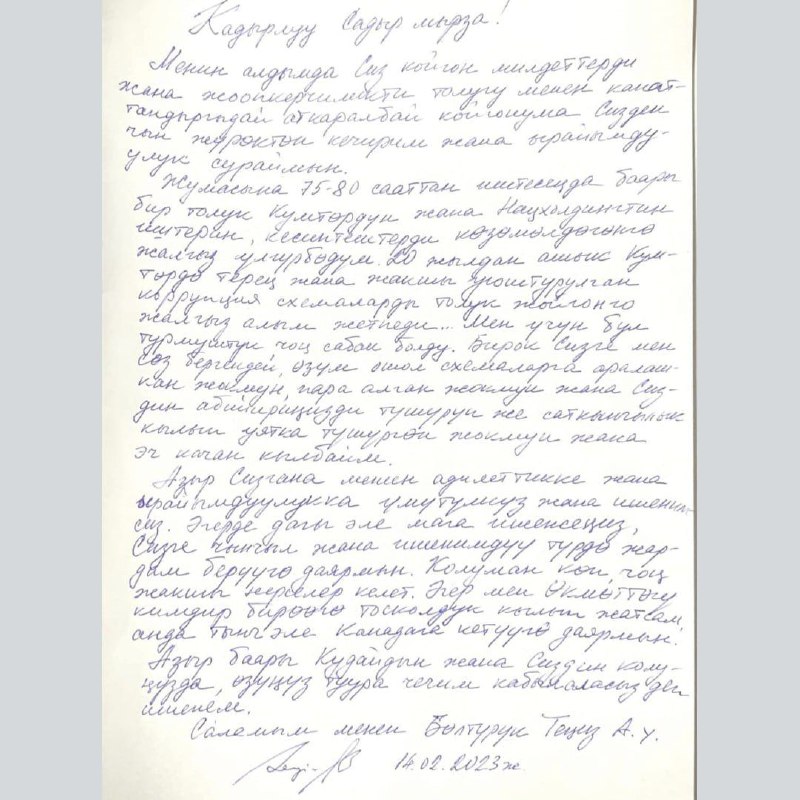 Кадырлуу Садыр мырза!
Менин алдымда Сиз койгон милдеттерди
жана жоопкерчиликти толугу менен канат-
тандыргыдай аткаралбай койгонума Сизден
чын жүрөктөн кечирим жана ырайымду-
улук сураймын.
Жумасына 75-80 сааттан иштесеңда баары
бир толук Кумтөрдүн жана Нацхолдингтин
иштерин, кесиптештерди көзөмөлдөгөнгө
жалгыз үлгүрбөдүм. 20 жылдан ашык Кум-
төрдө терең жана жакшы уюштурулган
коррупция схемаларды толук жойгонго
жалгыз алым жетпеди... Мен үчүн бул
турмуштук чоң сабак болду. Бирок Сизге мен
сөз бергендей, өзүм ошол схемаларга аралаш-
кан жокмун, пара алган жокмун жана Сиз-
дин абийириңизди түшүрүп же саткынчылык
кылып уятка түшүргөн жокмун жана
эч качан кылбайм.
Азыр Сизгана менин адилеттикке жана
ырайымдуулукка үмүтүмсүз жана
сиз. Эгерде дагы эле мага ишенсеңиз,
Сизге чынчыл жана ишенимдүү түрдө жар-
дам берүүгө даярмын. Колуман көп, чоң
жакшы нерселер келет. Эгер мен Өкмөттөгү
кимдир бирөөгө тоскоолдук кылып жатсам,
анда тынч эле Канадага кетүүгө даярмын.
Азыр баары Кудайдын жана Сиздин колу-
ңузда, өзүңүз туура чечим кабылаласыз деп
ишенем.
Саламым менен Бөлтүрүк Теңиз А. у.
14.02.2023 ж.